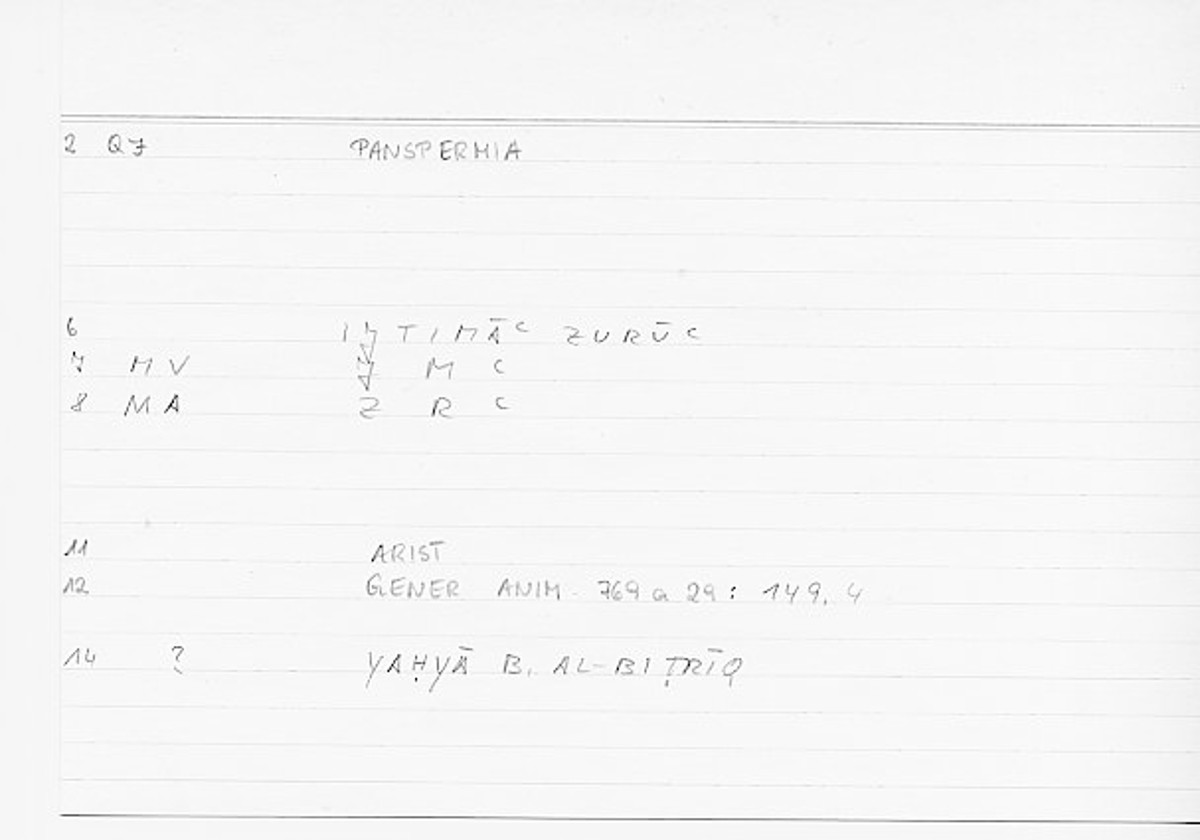 2 Q7 PANSPERMIA
6 IǦTIMĀʿ ZURŪʿ
7 MV Ǧ M ʿ
8 MA Z R ʿ
11 ARIST
12 GENER ANIM. 769 a 29 : 149, 4
14 ? YAḤYĀ B. AL-BIṬRĪQ